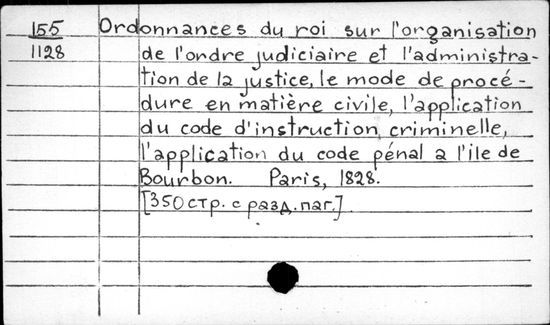 155
1128
Ordonnances du roi sur l'organisation
de l'ordre judiciaire et l'administra-
tion de la justice, le mode de procé-
dure en matière civile, l'application
du code d'instruction criminelle,
l'application du code pénal a l'ile de
Bourbon. Paris, 1828.
[350 стр. с разд. паг.]